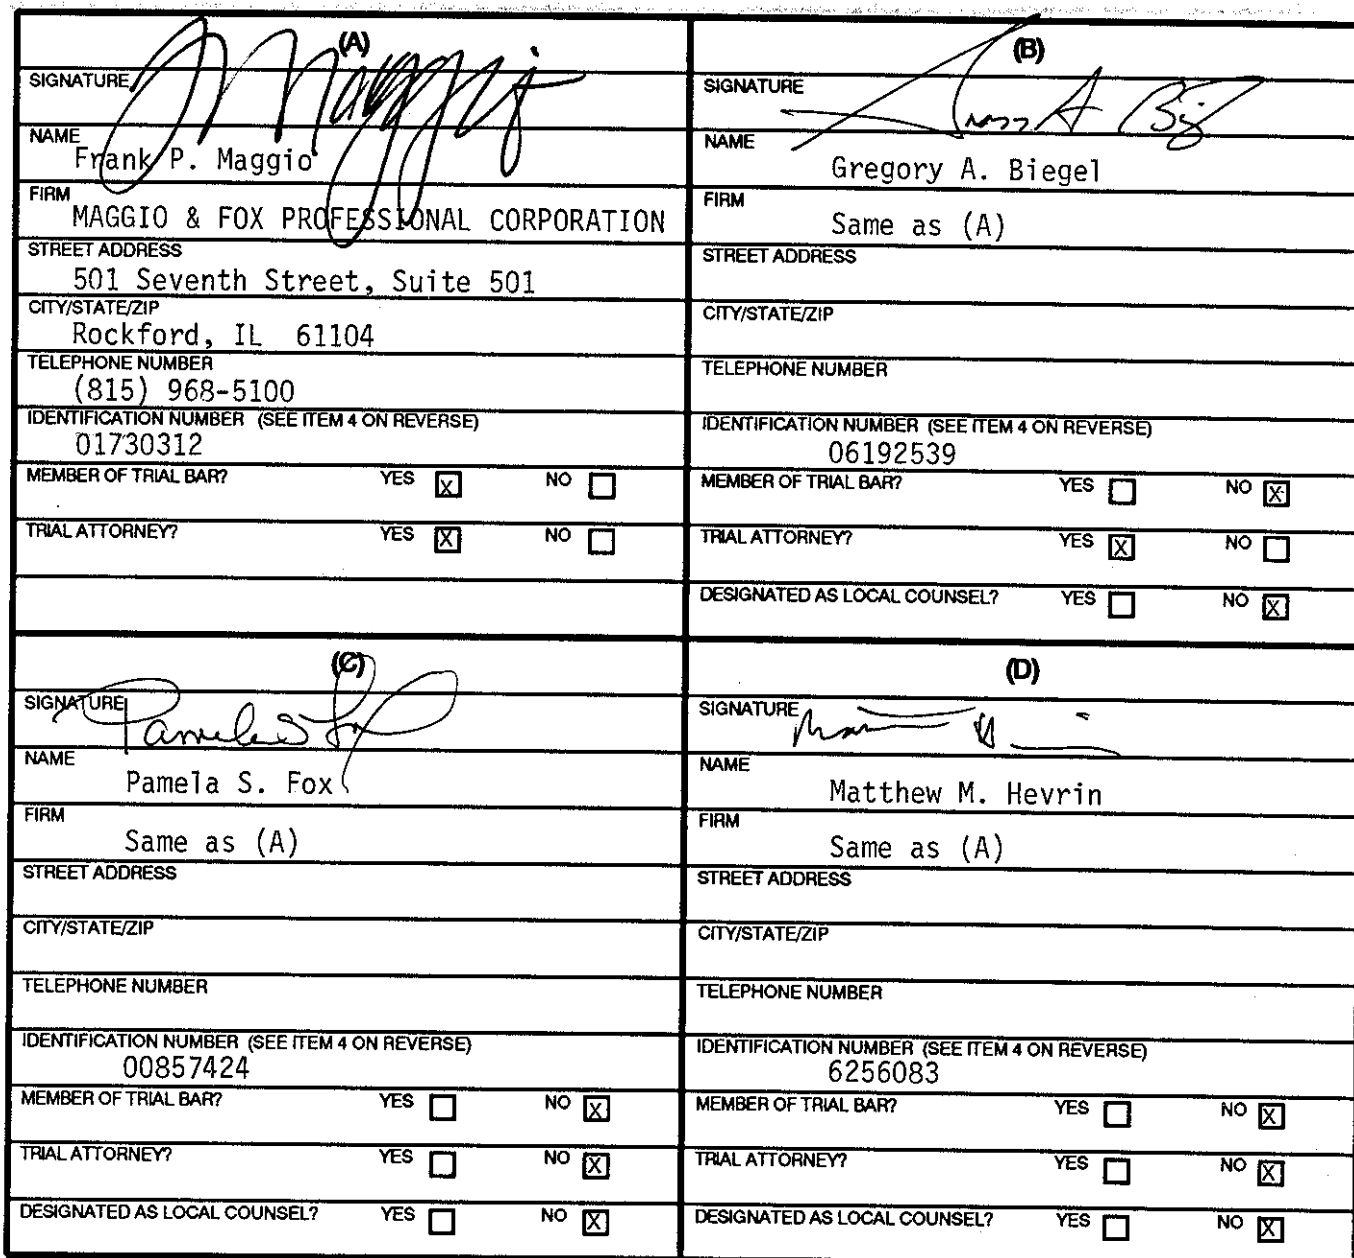 (A)
SIGNATURE Maggio
NAME
Frank P. Maggio
FIRM
MAGGIO & FOX PROFESSIONAL CORPORATION
STREET ADDRESS
501 Seventh Street, Suite 501
CITY/STATE/ZIP
Rockford, IL 61104
TELEPHONE NUMBER
(815) 968-5100
IDENTIFICATION NUMBER (SEE ITEM 4 ON REVERSE)
01730312
MEMBER OF TRIAL BAR? YES X NO
TRIAL ATTORNEY? YES X NO
(B)
SIGNATURE
NAME
Gregory A. Biegel
FIRM
Same as (A)
STREET ADDRESS
CITY/STATE/ZIP
TELEPHONE NUMBER
IDENTIFICATION NUMBER (SEE ITEM 4 ON REVERSE)
06192539
MEMBER OF TRIAL BAR? YES NO X
TRIAL ATTORNEY? YES X NO
DESIGNATED AS LOCAL COUNSEL? YES NO X
(C)
SIGNATURE Pamela S Fox
NAME
Pamela S. Fox
FIRM
Same as (A)
STREET ADDRESS
CITY/STATE/ZIP
TELEPHONE NUMBER
IDENTIFICATION NUMBER (SEE ITEM 4 ON REVERSE)
00857424
MEMBER OF TRIAL BAR? YES NO X
TRIAL ATTORNEY? YES NO X
DESIGNATED AS LOCAL COUNSEL? YES NO X
(D)
SIGNATURE
NAME
Matthew M. Hevrin
FIRM
Same as (A)
STREET ADDRESS
CITY/STATE/ZIP
TELEPHONE NUMBER
IDENTIFICATION NUMBER (SEE ITEM 4 ON REVERSE)
6256083
MEMBER OF TRIAL BAR? YES NO X
TRIAL ATTORNEY? YES NO X
DESIGNATED AS LOCAL COUNSEL? YES NO X